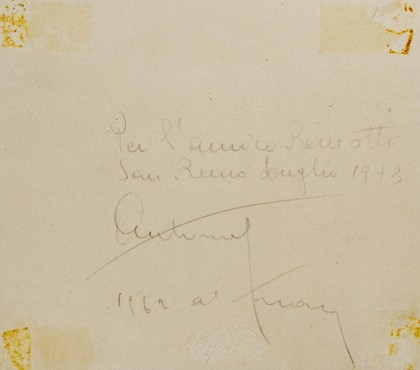 Per l'amico Remotti
San Remo luglio 1943
Antonio
1942 a